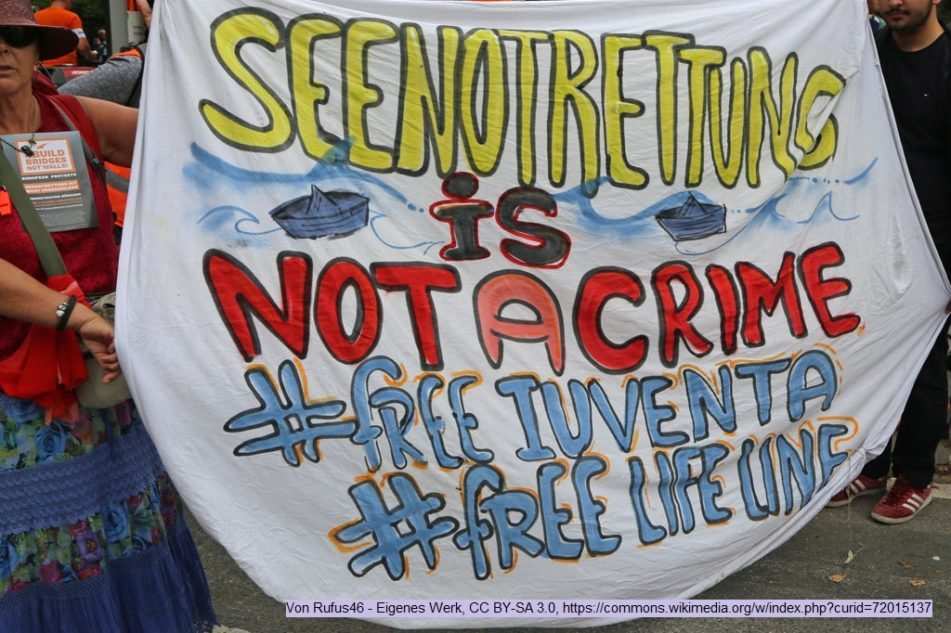 SEENOTRETTUNG
iS
NOT A CRIME
#fREE IUVENTA
#fREE LIFE LINE
BUILD
BRIDGES
NOT WALLS!
Von Rufus46 - Eigenes Werk, CC BY-SA 3.0, https://commons.wikimedia.org/w/index.php?curid=72015137